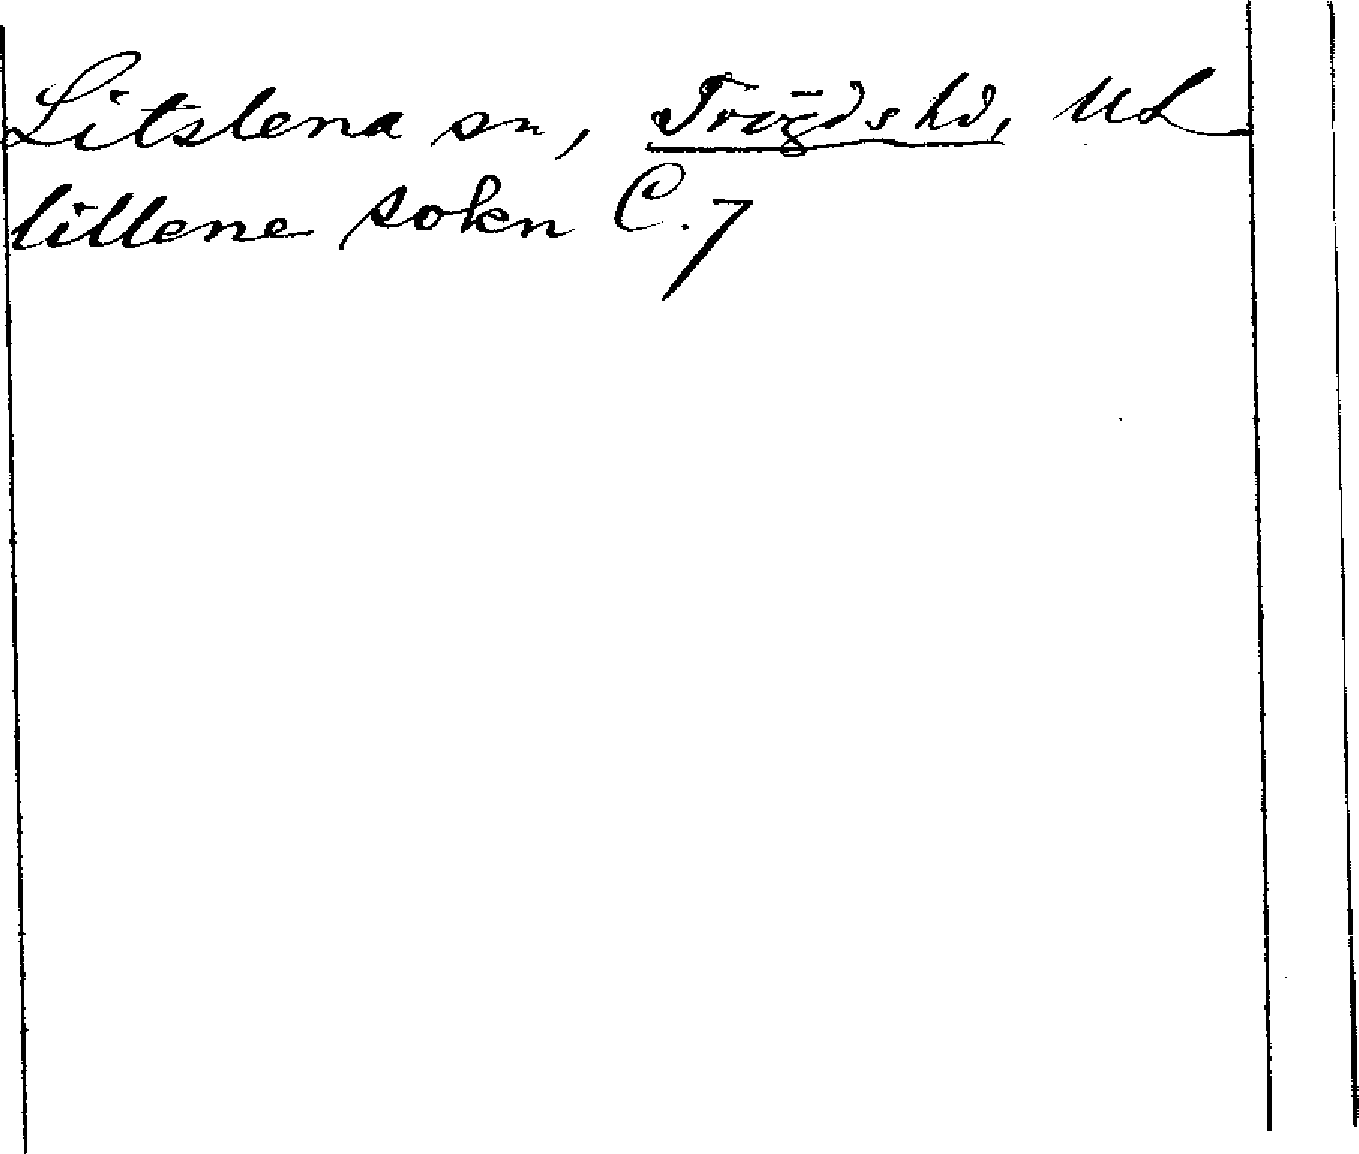 Litslena sn, Trögds hd, UL
lillene sokn C.7